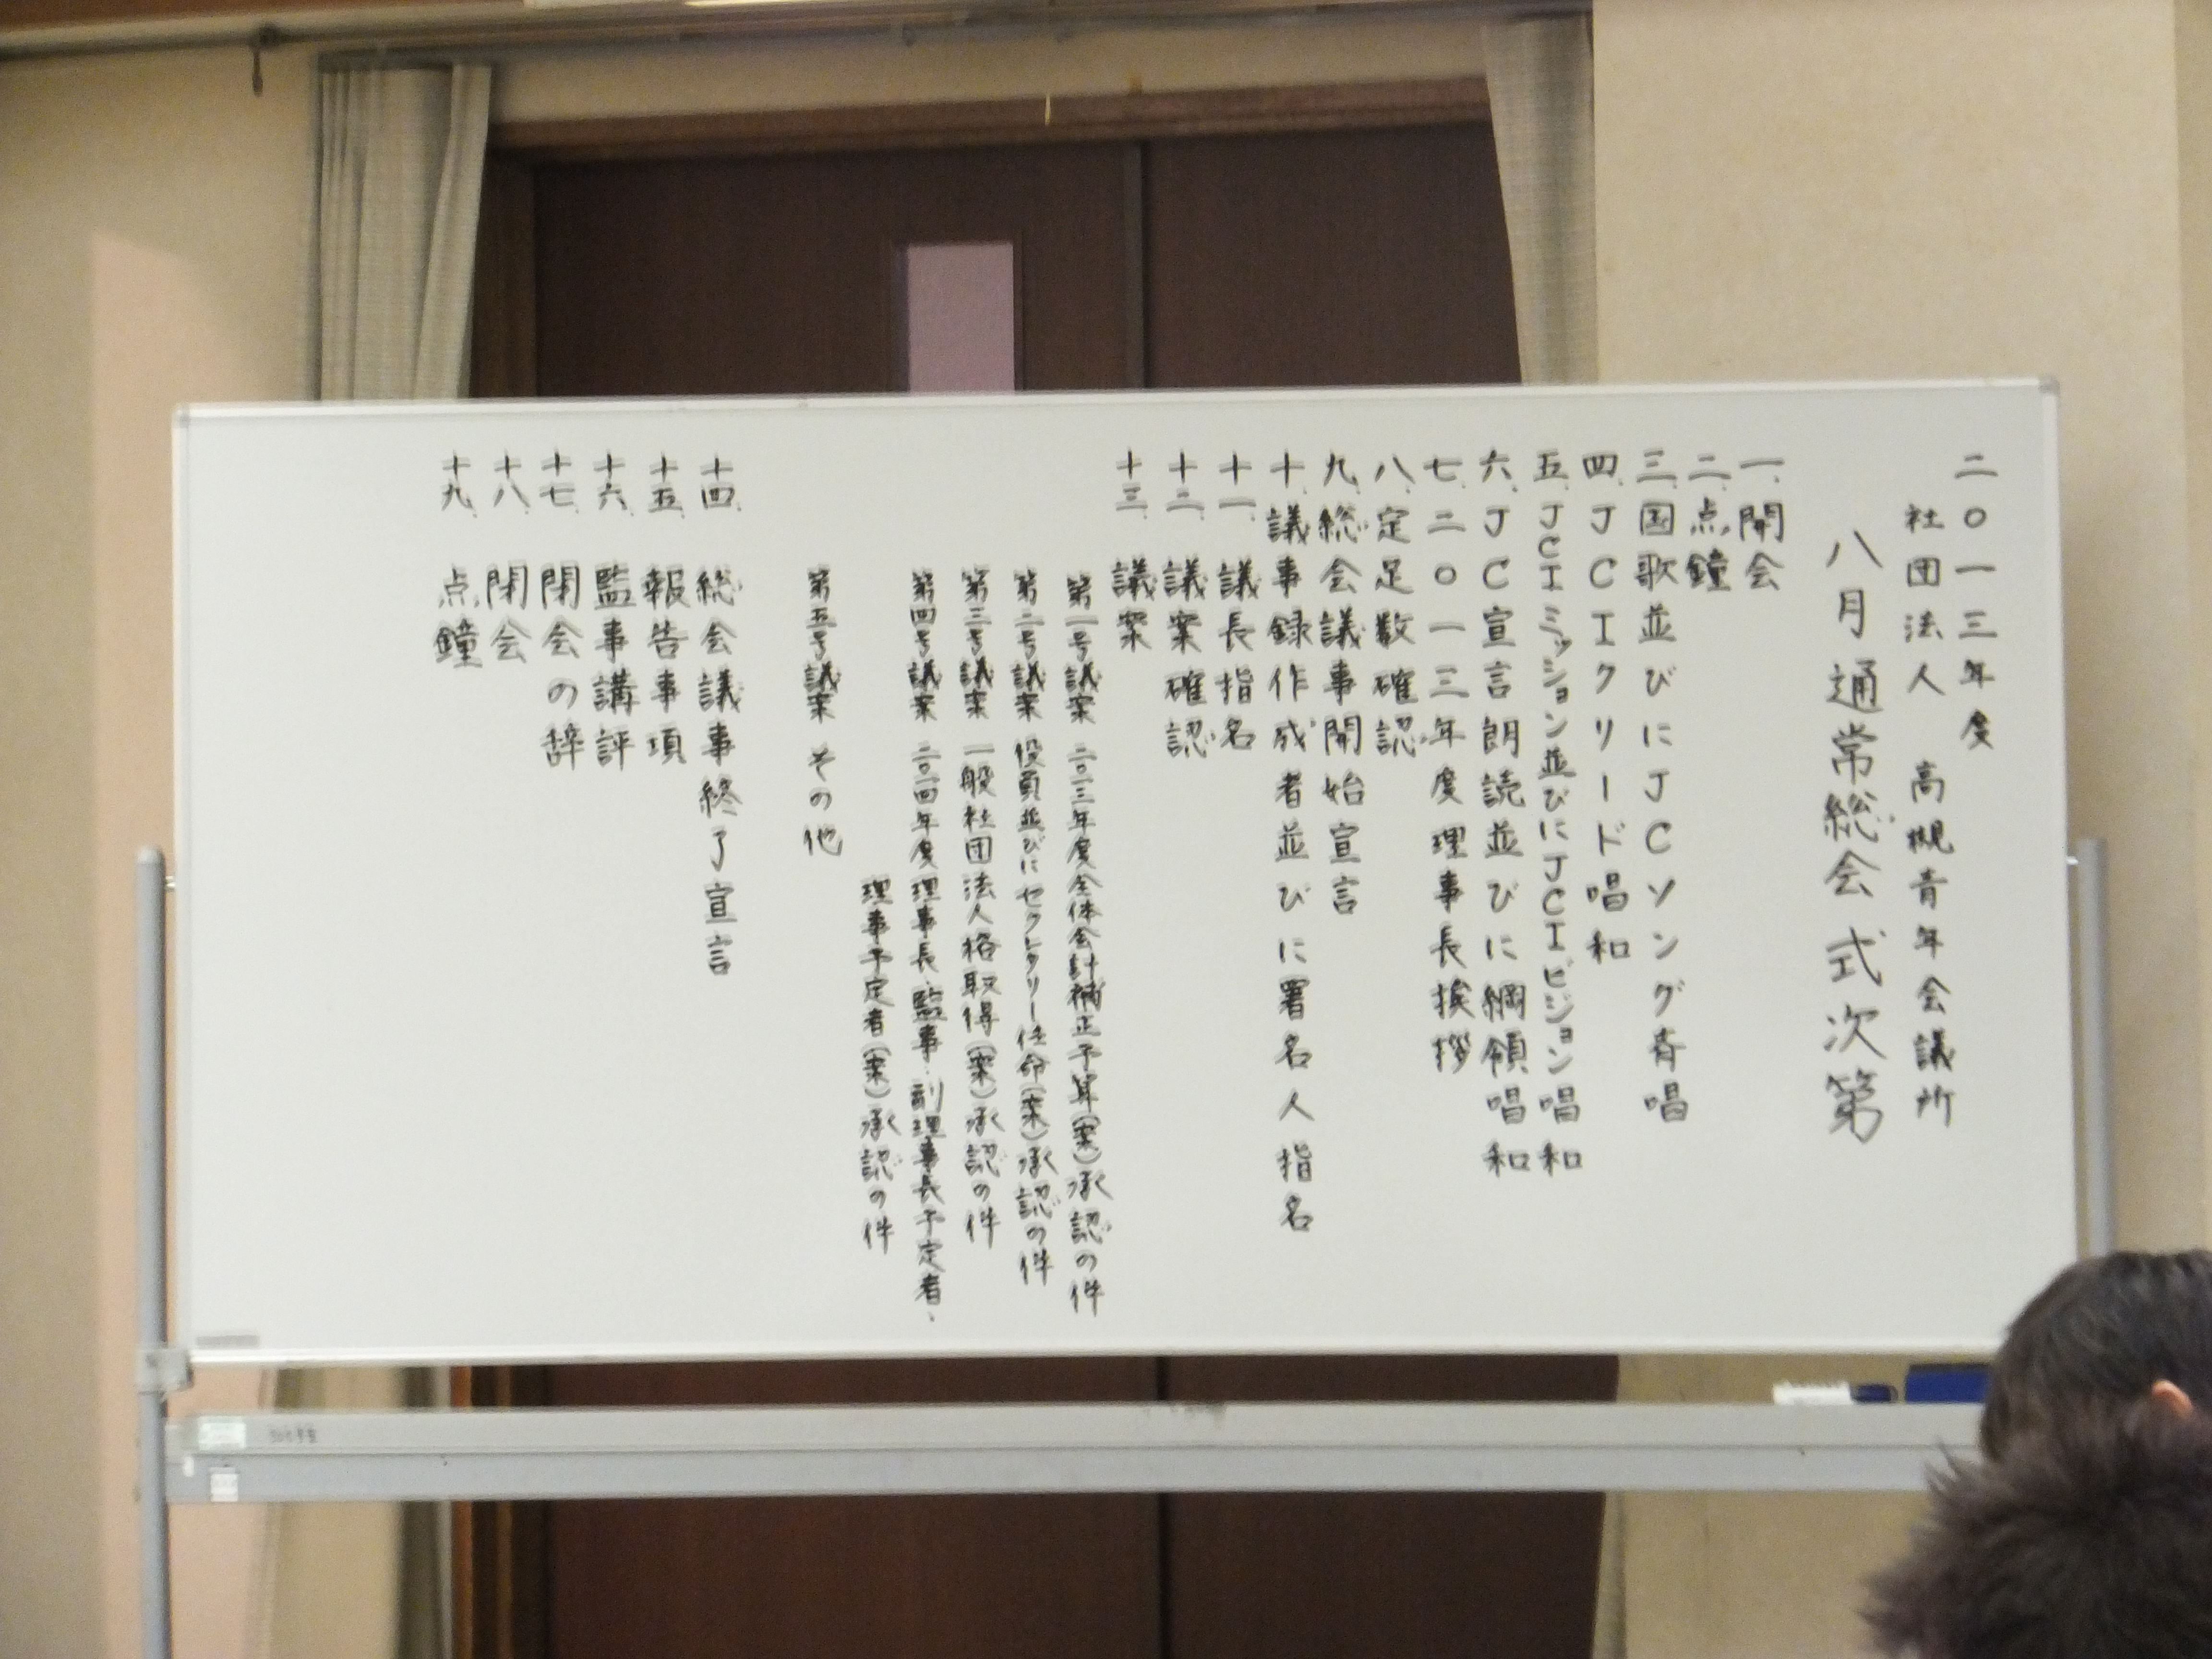 二〇一三年度
社団法人 高槻青年会議所
八月通常総会式次第
一.開会
二.点鐘
三.国歌並びにJCソング斉唱
四.JCIクリード唱和
五.JCIミッション並びにJCIビジョン唱和
六.JC宣言朗読並びに綱領唱和
七.二〇一三年度理事長挨拶
八.定足数確認
九.総会議事開始宣言
十.議事録作成者並びに署名人指名
十一.議長指名
十二.議案確認
十三.議案
第一号議案 二〇一三年度全体会計補正予算(案)承認の件
第二号議案 役員並びにセクレタリー任命(案)承認の件
第三号議案 一般社団法人格取得(案)承認の件
第四号議案 二〇一四年度理事長、監事、副理事長予定者、
理事予定者(案)承認の件
第五号議案 その他
十四.総会議事終了宣言
十五.報告事項
十六.監事講評
十七.閉会の辞
十八.閉会
十九.点鐘